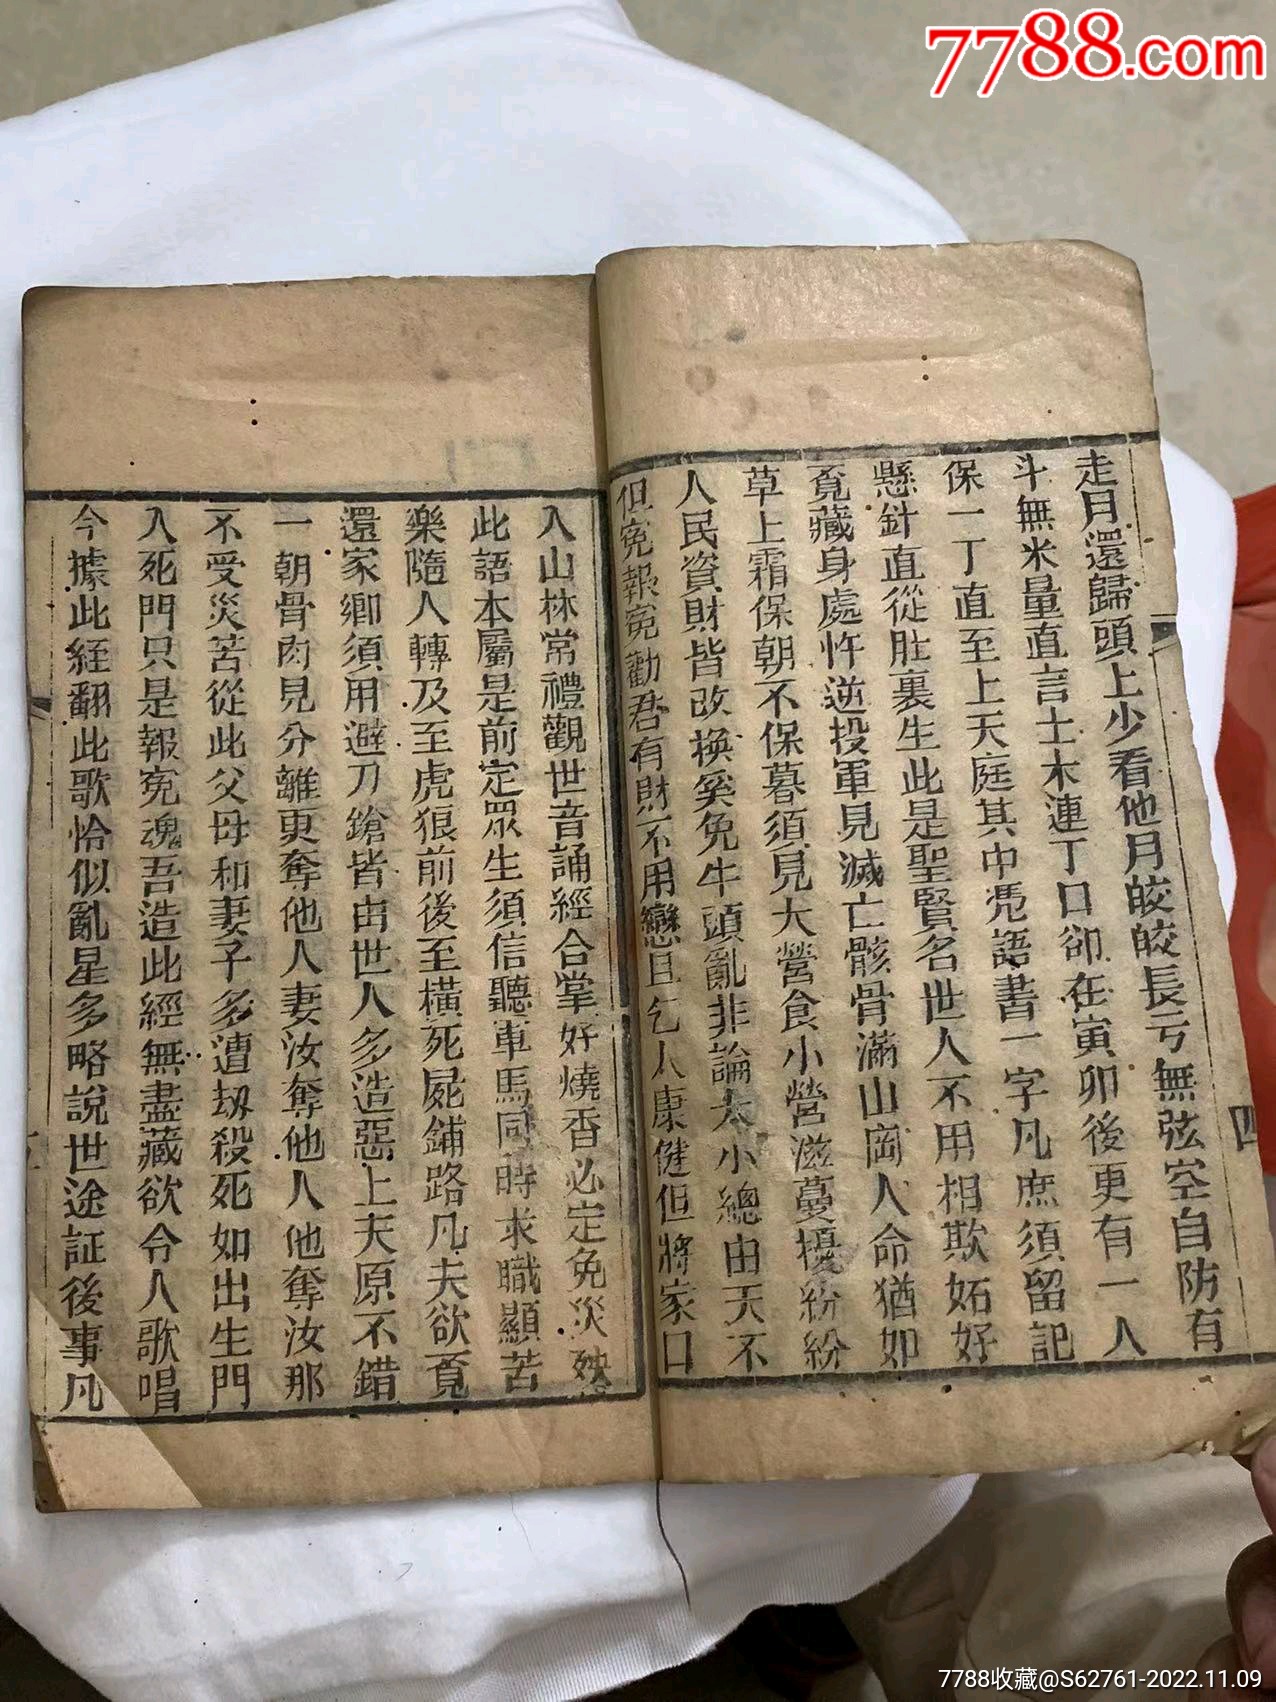 7788.com
走月還歸頭上少看他月皎皎長亏無弦空自防有
斗無米量直言土木連丁口卻在寅卯後更有一人
保一丁直至上天庭其中凭語書一字凡庶須留記
懸針直從肚裏生此是聖賢名世人不用相欺妬好
覔藏身處忤逆投軍見滅亡骸骨滿山岡人命猶如
草上霜保朝不保暮須見大營食小營滋蔓擾紛紛
人民資財皆改換奚免牛頭亂非論大小總由天不
但寃報寃勸君有財不用戀且乞人康健但將家口
四
入山林常禮觀世音誦經合掌好燒香必定免災殃
此語本屬是前定眾生須信聽車馬同時求職顯苦
樂隨人轉及至虎狼前後至橫死屍鋪路凡夫欲覔
還家鄉須用避刀鎗皆由世人多造惡上天原不錯
一朝骨肉見分離更奪他人妻汝奪他人他奪汝那
不受災苦從此父母和妻子多遭刼殺死如出生門
入死門只是報寃魂吾造此經無盡藏欲令人歌唱
今據此経翻此歌恰似亂星多略說世途証後事凡
7788收藏@S62761-2022.11.09